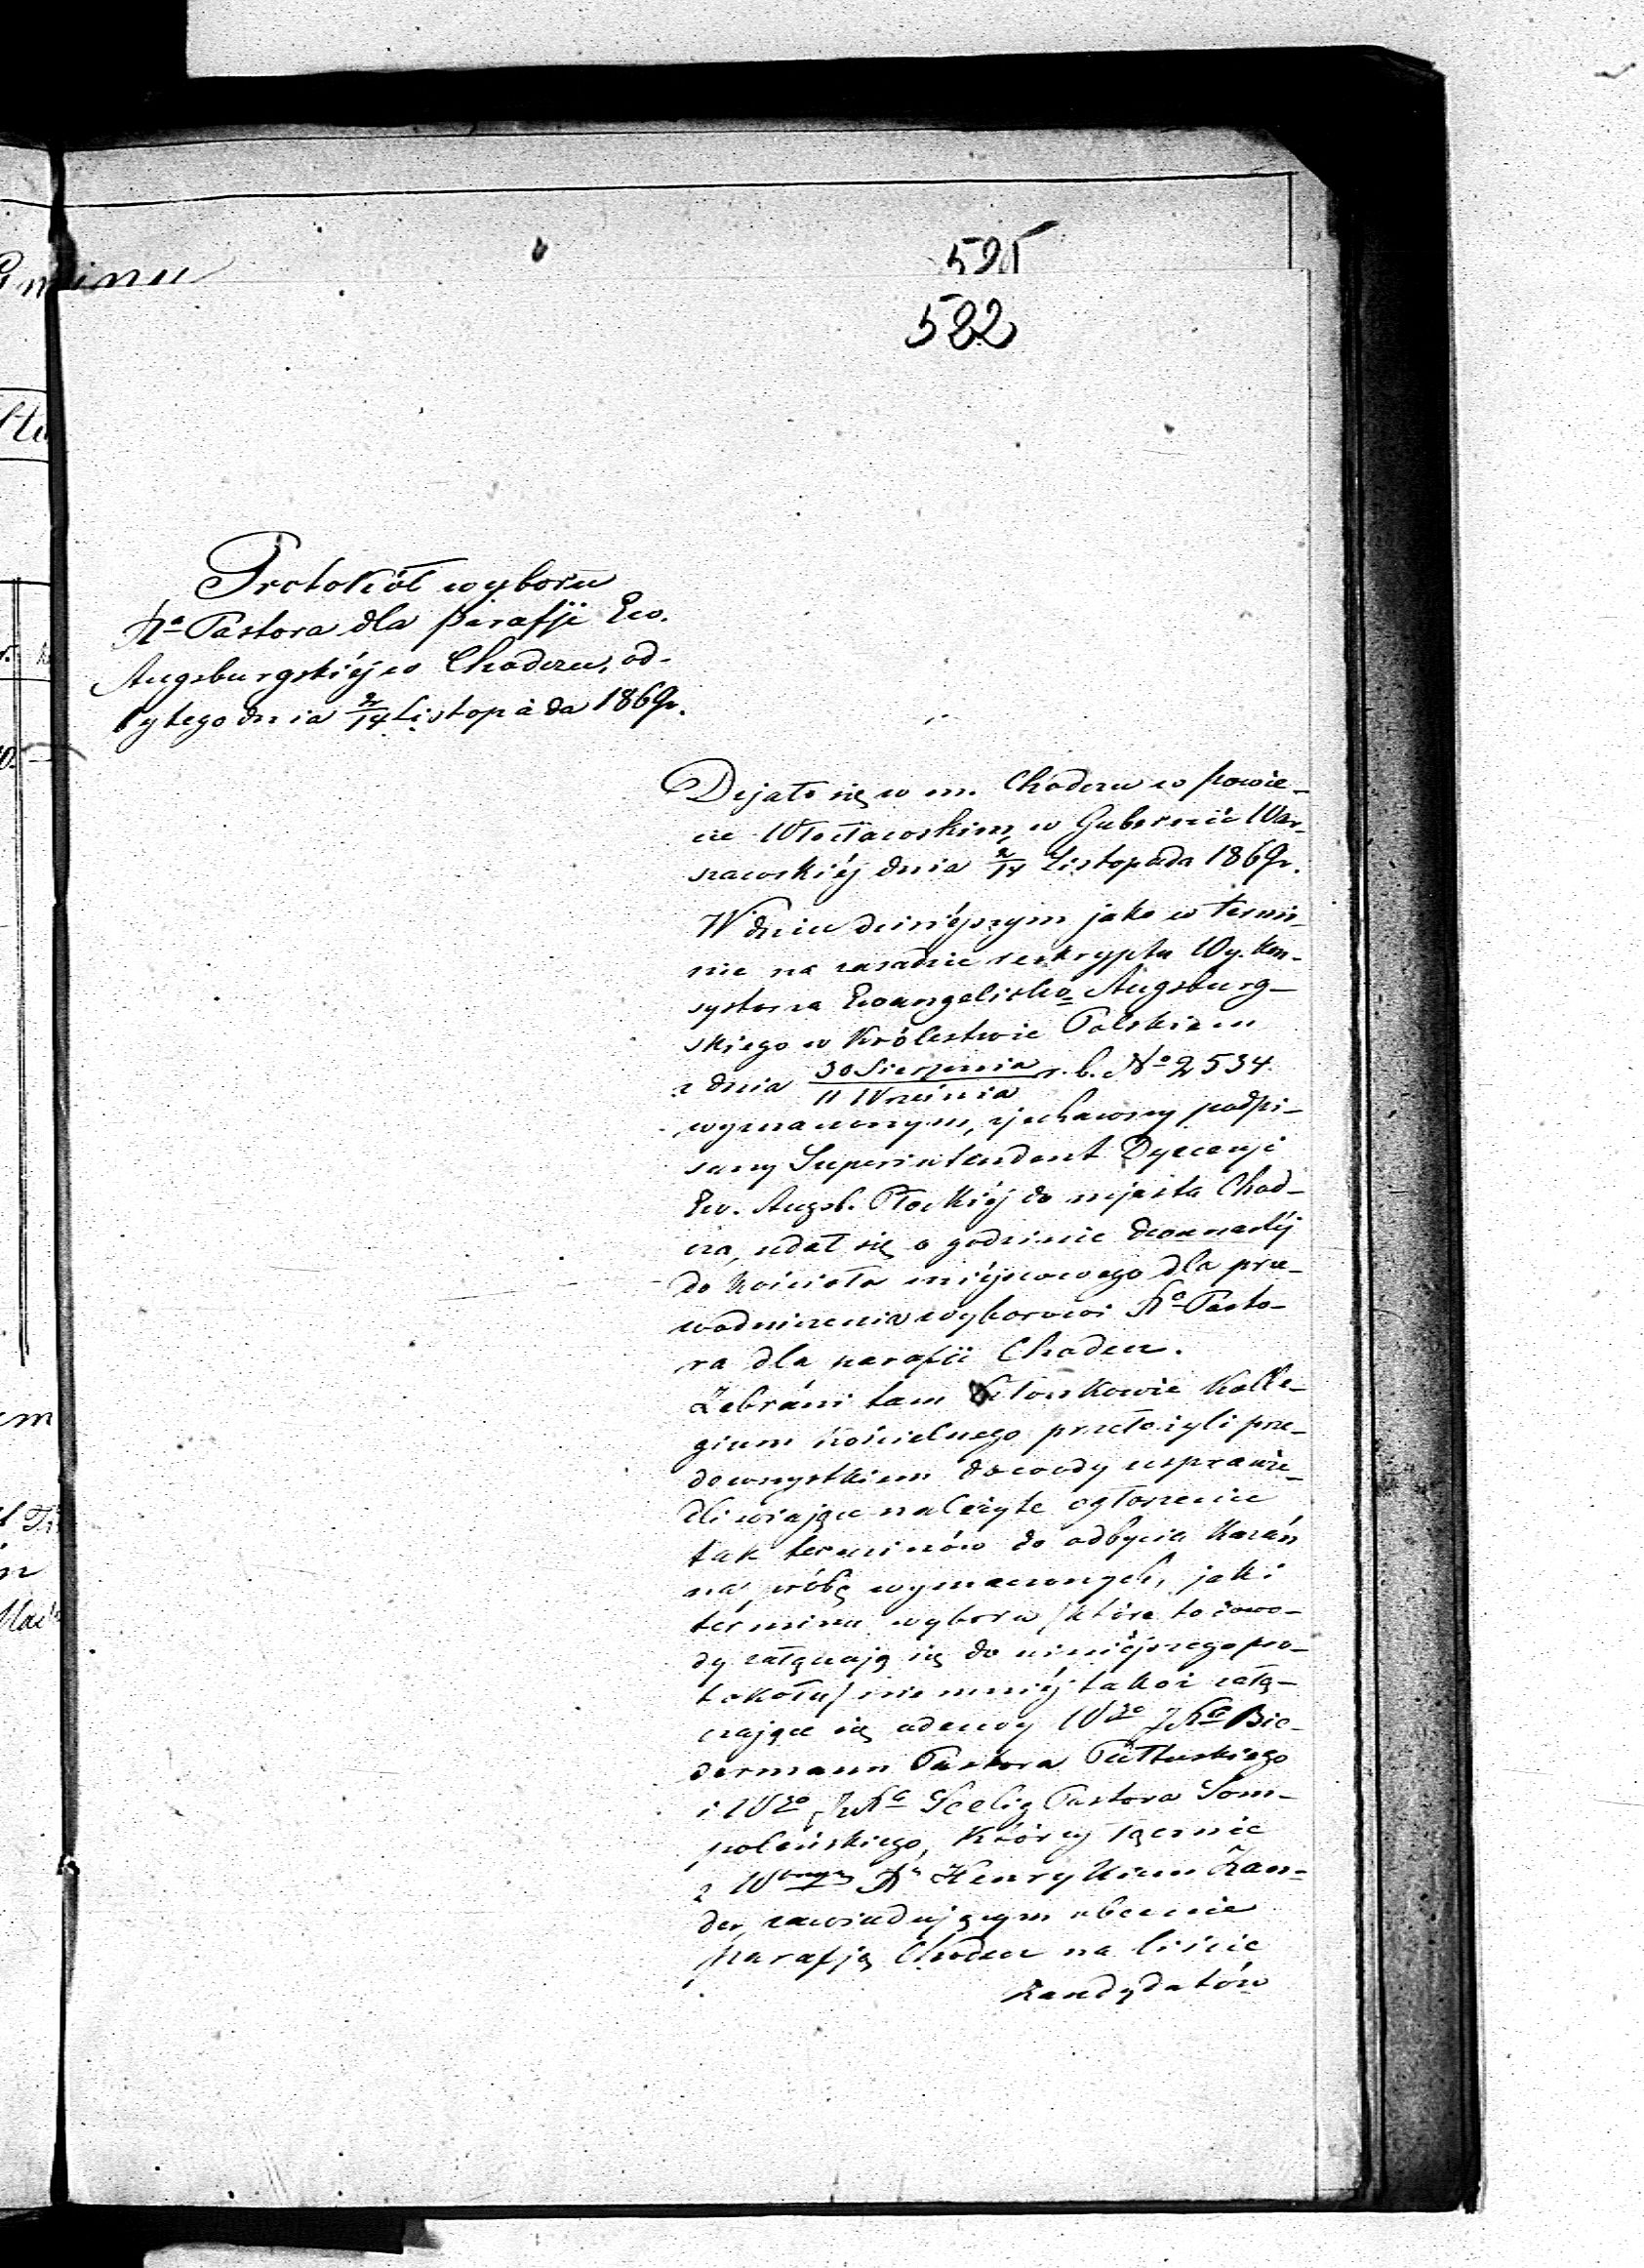 521
522
Protokół wyboru
Xa Pastora dla parafji Ew.
Augsburgskiéj w Chodczu, od-
bytego dnia 2/14 Listopada 1869r.
Dzjało się w m. Chodczu w powie-
cie Włocławskim, w Gubernii War-
szawskiéj dnia 2/14 Listopada 1869r.
W dniu dzisiéjszym jako w termi-
nie na zasadzie reskryptu Wy. Kon-
systorza Ewangelicko-Augsburg-
skiego w Królestwie Polskiem
z dnia 30 Sierpnia / 11 Września r. b. No 2534.
wyznaczonym, zjechawszy podpi-
sany Superintendent Dyecezji
Ew. Augsb. Płockiéj do mjasta Chod-
cza, udał się o godzinie dwunastéj
do kościoła miéjscowego dla prze-
wodniczenia wyborowi Xa Pasto-
ra dla parafii Chodecz.
Zebrani tam Członkowie Kolle-
gium kościelnego przełożyli prze-
dewszystkiem dowody usprawie-
dliwiające należyte ogłoszenie
tak terminów do odbycia kazań
na próbę wyznaczonych, jak i
terminu wyboru /które to dowo-
dy załączają się do niniéjszego pro-
tokołu/ nie mniéj takoż załą-
czające się odezwy Wgo JXa Bie-
dermann Pastora Pułtuskiego
i Wgo JXa Seelig Pastora Som-
poleńskiego, którzy łącznie
z X Henrykiem Zan-
der, zawiadującym obecnie
Parafją Chodecz na liście
Kandydatów